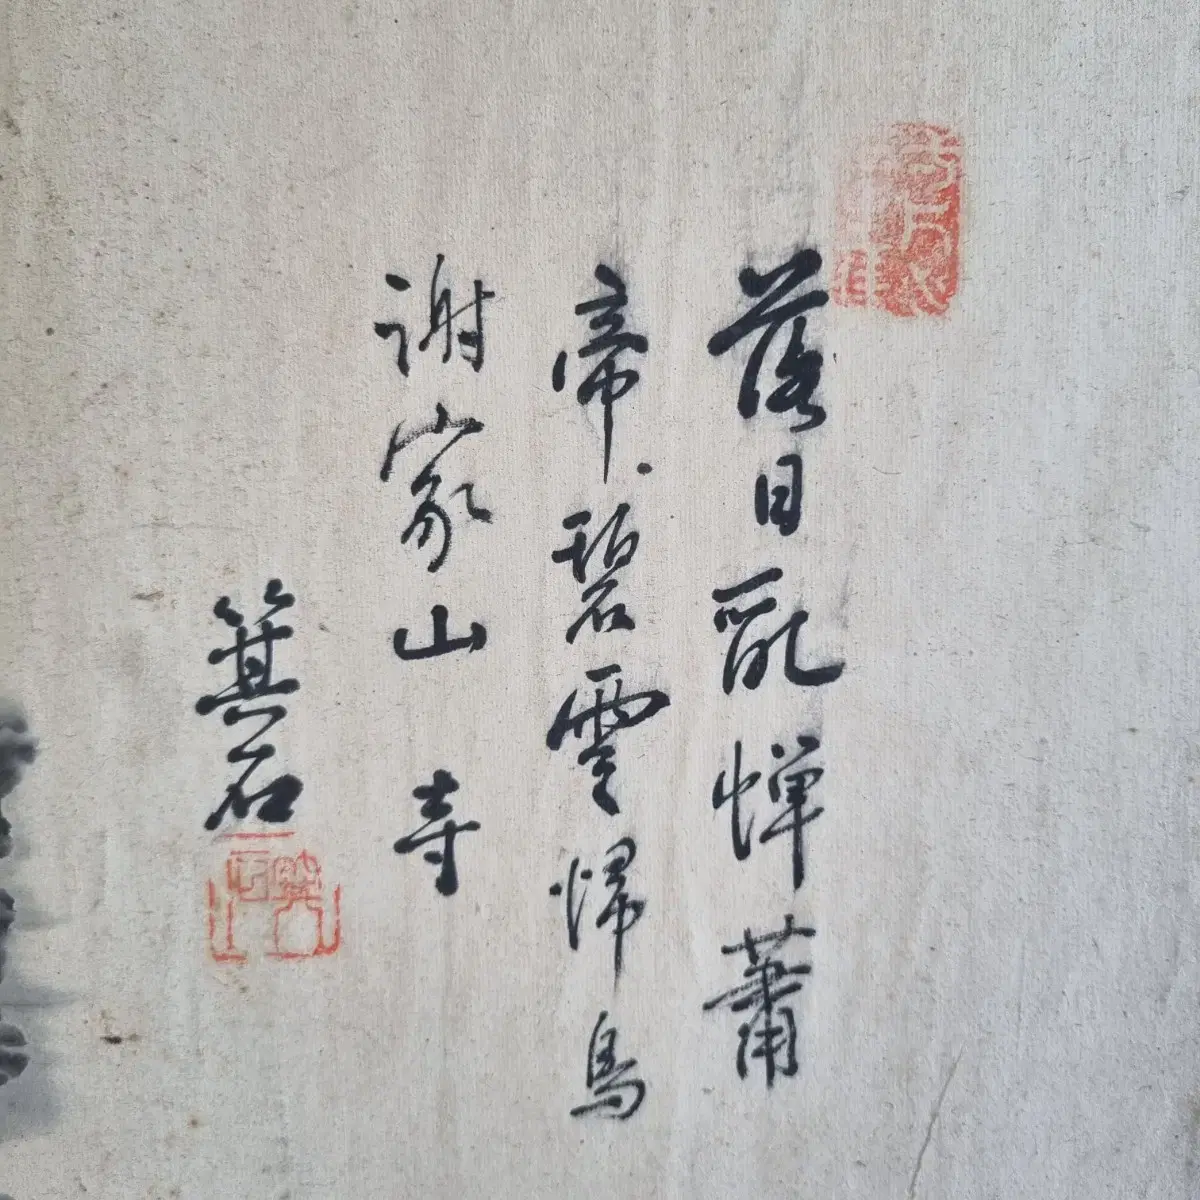 落日亂蟬蕭
帝、碧雲歸鳥
謝家山寺
箕石